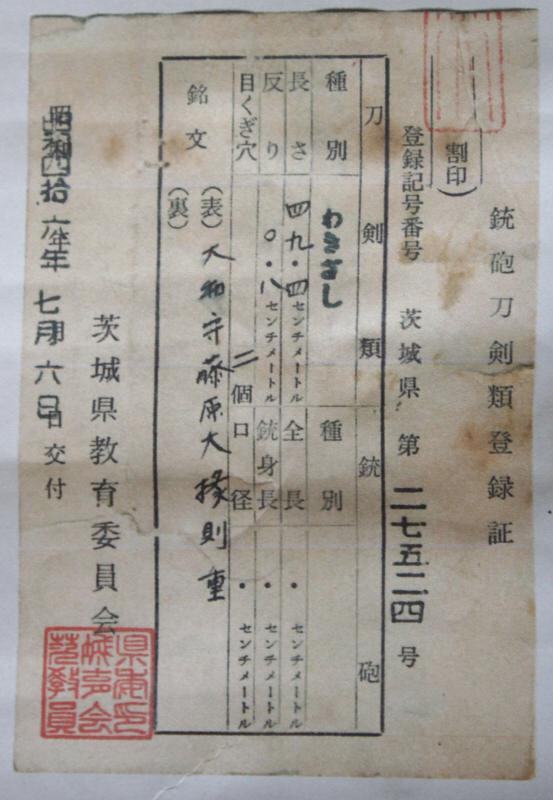 銃砲刀剣類登録証
(割印)
登録記号番号 茨城県 第 二七五二四 号
刀剣類 銃砲
種別 わきざし 種別
長さ 四九・四 センチメートル 全長 ・ センチメートル
反り 〇・八 センチメートル 銃身長 ・ センチメートル
目くぎ穴 二個 口径 ・ センチメートル
銘文 (表) 大和守藤原大掾則重
(裏)
茨城県教育委員会
昭和四拾六年 七月 六日 交付